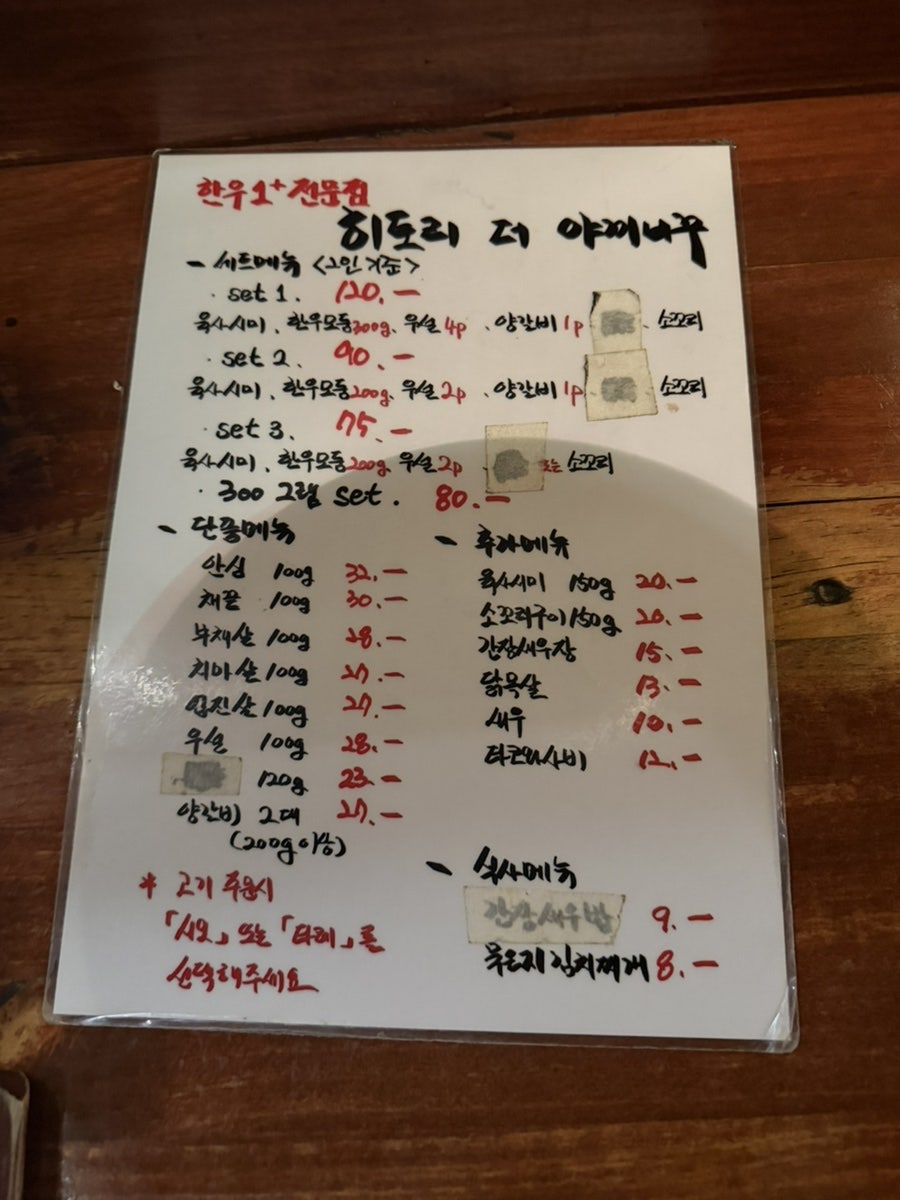 한우 1+ 전문점
히토리 더 야끼니꾸
- 세트메뉴 <2인 기준>
· set 1. 120.-
육사시미, 한우모둠 300g, 우설 4p, 양갈비 1p, 소꼬리
· set 2. 90.-
육사시미, 한우모둠 200g, 우설 2p, 양갈비 1p, 소꼬리
· set 3. 75.-
육사시미, 한우모둠 200g, 우설 2p, 또는 소꼬리
· 300 그램 set. 80.-
- 단품메뉴
안심 100g 32.-
채끝 100g 30.-
부채살 100g 28.-
치마살 100g 27.-
업진살 100g 27.-
우설 100g 28.-
120g 23.-
양갈비 2대 27.-
(200g이상)
* 고기 주문시
「시오」 또는 「타레」를
선택해주세요
- 추가메뉴
육사시미 150g 20.-
소꼬리구이 150g 20.-
간장새우장 15.-
닭목살 13.-
새우 10.-
타코와사비 12.-
- 식사메뉴
간장새우밥 9.-
묵은지김치찌개 8.-